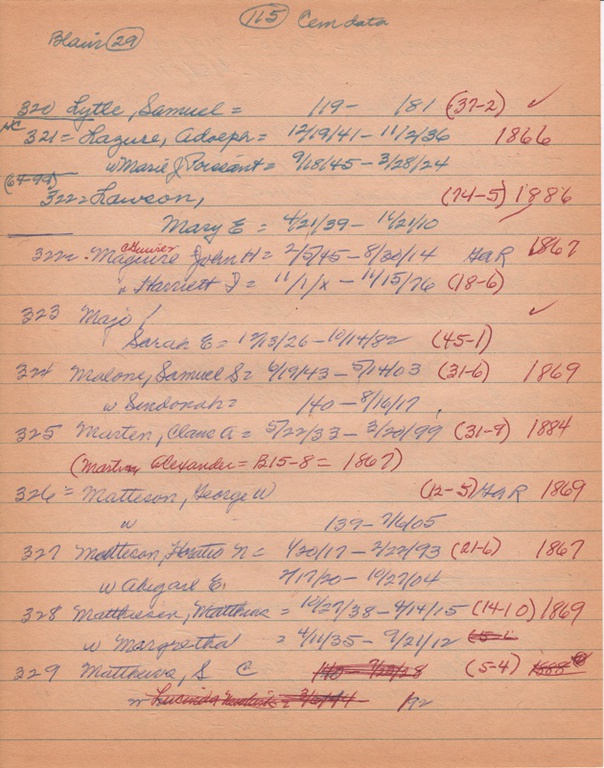 115 Cem data
Blair 29
320 Lytle, Samuel = /19 - /81 (37-2) ✓
NC
321 = Lazure, Adolph = 12/19/41 - 11/2/36 1866
w Marie J Poissant = 9/18/45 - 3/28/24
(64-99)
322 = Lawson, (74-5) 1886
Mary E = 4/21/39 - 10/21/10
322 - Maguire John H = 2/5/45 - 8/30/14 GaR 1867
w Harriett I = 11/1/x - 11/15/76 (18-6)
323 Majo / ✓
Sarah E = 12/13/26 - 10/14/82 (45-1)
324 Malone, Samuel S = 6/19/43 - 5/14/03 (31-6) 1869
w Sindonah = /40 - 8/16/17
325 Marten, Clane A = 5/22/33 - 3/20/99 (31-9) 1884
(Martin Alexander = B15-8 = 1867)
326 = Matteson, George W (12-5) GaR 1869
w /39 - 7/6/05
327 Matteson, Horatio N = 1/20/17 - 2/22/93 (21-6) 1867
w Abigail E. 2/17/20 - 10/27/04
328 Matthiesen, Matthias = 10/27/38 - 4/14/15 (14-10) 1869
w Margretha = 4/11/35 - 9/21/12
329 Matthews, S C (5-4)
w Lucinda /92